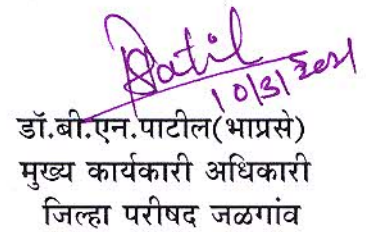 Patil
10/3/2021
डॉ.बी.एन.पाटील(भाप्रसे)
मुख्य कार्यकारी अधिकारी
जिल्हा परीषद जळगांव